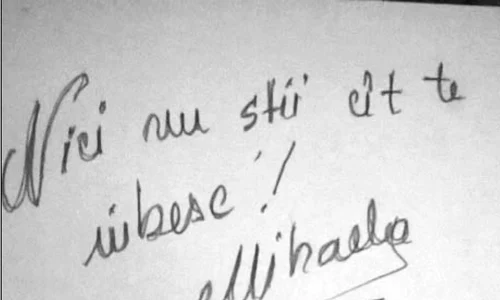 Nici nu stii cît te
iubesc !
Mihaela